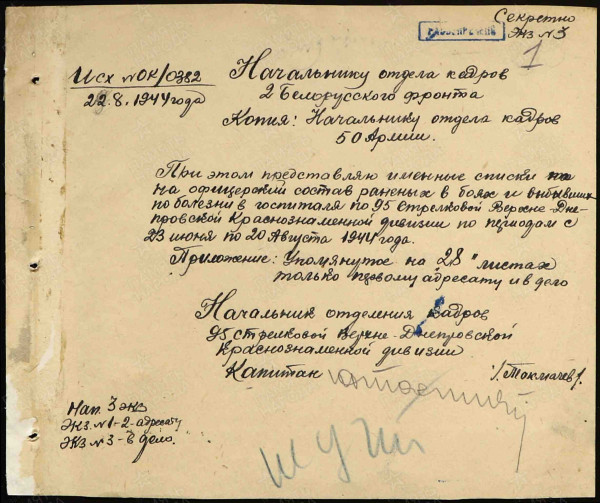 Секретно
Экз №3
РАССЕКРЕЧЕНО
1
Исх №ОК/0382
22.8.1944 года
Начальнику отдела кадров
2 Белорусского фронта
Копия: Начальнику отдела кадров
50 Армии.
При этом представляю именные списки на
на офицерский состав раненых в боях и выбывших
по болезни в госпиталя по 95 стрелковой Верхне-Дне-
провской Краснознаменной дивизии по периодам с
23 июня по 20 Августа 1944 года.
Приложение: Упомянутое на „28" листах
только первому адресату и в дело
Начальник отделения кадров
95 стрелковой Верхне-Днепровской
Краснознаменной дивизии
Капитан
/Токмачев/.
Нап. 3 экз
Экз №1-2-адресату
Экз №3-в дело.